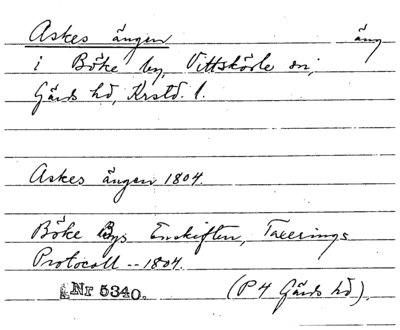 Askes ängen äng
i Böke by, Vittskövle sn,
Gärds hd, Krstd. l.
Askes ängen 1804.
Böke Bys Enskiften, Taxerings
Protocoll -- 1804.
Nr 5340. (P4 Gärds hd).